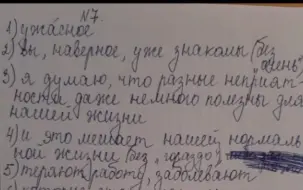 №7.
1) ужасное
2) вы, наверное, уже знакомы (без
"очень")
3) я думаю, что разные неприят-
ности даже немного полезны для
нашей жизни
4) и это мешает нашей нормаль-
ной жизни (без "гораздо")
5) теряют работу, заболевают